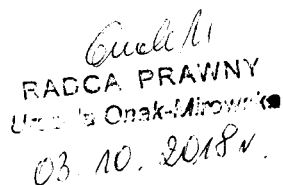 RADCA PRAWNY
Urszula Onak-Mirowska
03. 10. 2018 r.